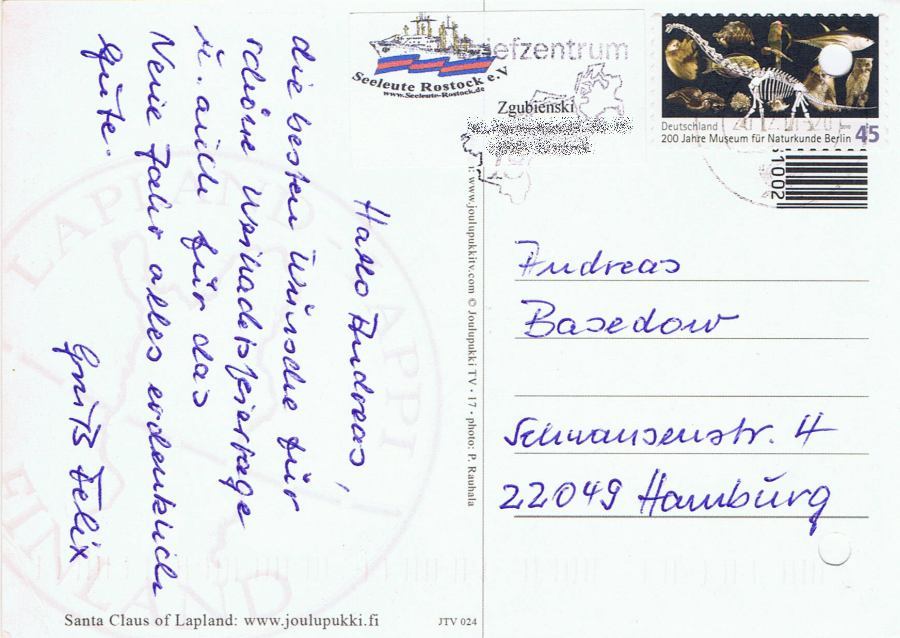 Hallo Andreas,
die besten Wünsche für
schöne Weihnachtsfeiertage
u. auch für das
Neue Jahr alles erdenklich
Gute.
Gruß Felix
Seeleute Rostock e.V
www.Seeleute-Rostock.de
Briefzentrum
Zgubienski
Deutschland
200 Jahre Museum für Naturkunde Berlin
45
1002
www.joulupukkitv.com © Joulupukki TV · 17 · photo: P. Rauhala
Andreas
Basedow
Schwansenstr. 4
22049 Hamburg
LAPLAND
LAPPI
FINLAND
Santa Claus of Lapland: www.joulupukki.fi
JTV 024